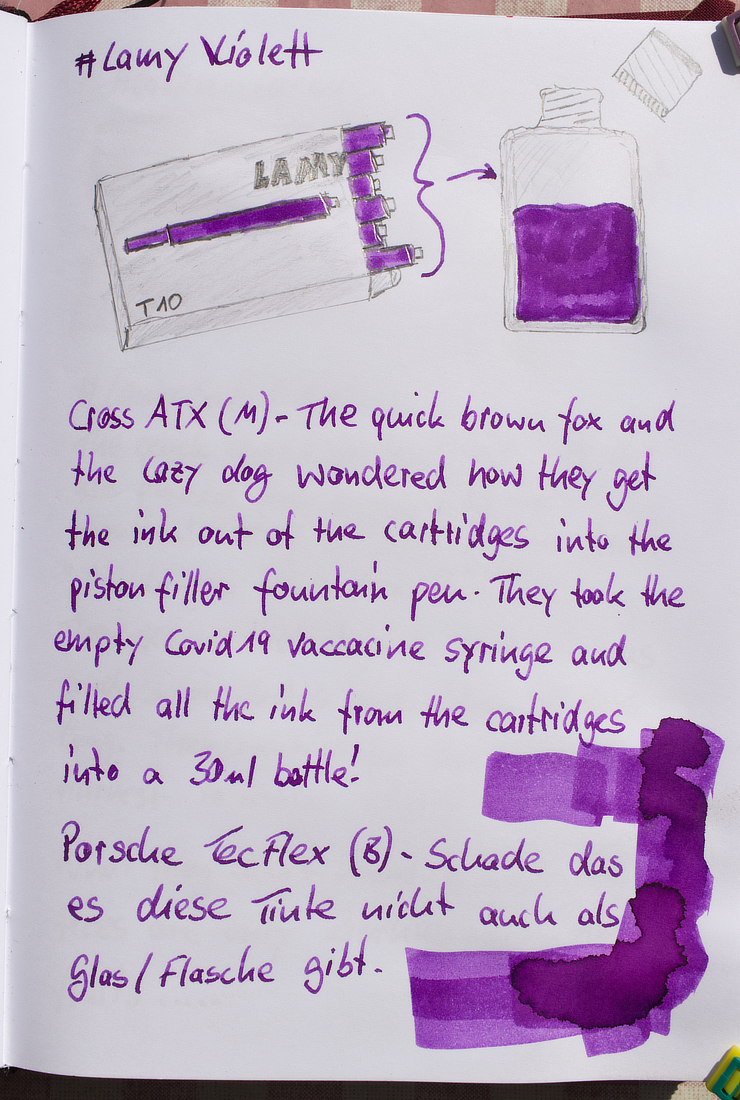 #Lamy Violett
LAMY
T10
Cross ATX (M) - The quick brown fox and
the lazy dog wondered how they get
the ink out of the cartridges into the
piston filler fountain pen. They took the
empty Covid19 vaccacine syringe and
filled all the ink from the cartridges
into a 30ml bottle!
Porsche TecFlex (B) - Schade das
es diese Tinte nicht auch als
Glas/Flasche gibt.